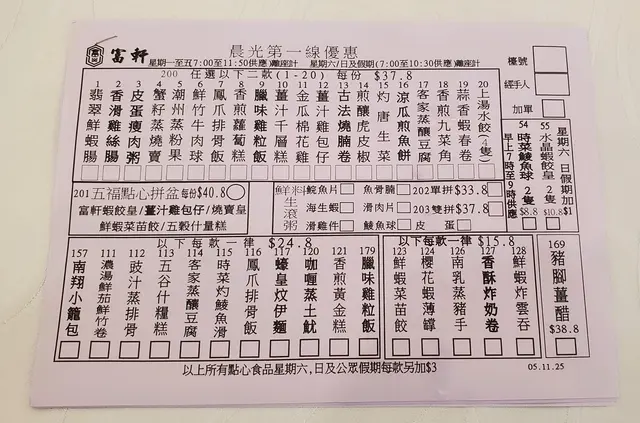 富軒
晨光第一線優惠
星期一至五(7:00至11:50供應)離座計 星期六/日及假期(7:00至10:30供應)離座計
檯號
經手人
加單
200 任選以下二款(1-20) 每份 $37.8
1 翡翠鮮蝦腸
2 香滑雞絲腸
3 皮蛋瘦肉粥
4 蟹籽蒸燒賣
5 潮州蒸粉果
6 鮮竹牛肉球
7 鳳爪排骨飯
8 香煎蘿蔔糕
9 臘味雞粒飯
10 薑汁千層糕
11 金瓜棉花雞
12 薑汁雞包仔
13 古法燒腩卷
14 煎釀虎皮椒
15 灼唐生菜
16 涼瓜煎魚餅
17 客家蒸釀豆腐
18 香煎九菜角
19 蒜香蝦春卷
20 上湯水餃(4隻)
54 時菜鯪魚球 2隻 $8.8
55 水晶蝦餃皇 2隻 $10.8
早上7時至9時供應
星期六日假期加$1
201 五福點心拼盆 每份$40.8
富軒蝦餃皇/薑汁雞包仔/燒賣皇
鮮蝦菜苗餃/五穀什量糕
鮮料生滾粥
鯇魚片 魚骨腩 202單拼$33.8
海生蝦 滑肉片 203雙拼$37.8
滑雞件 鯪魚球 皮蛋
以下每款一律 $24.8
157 南翔小籠包
111 濃湯鮮茄鮮竹卷
112 豉汁蒸排骨
113 五谷什糧糕
114 客家蒸釀豆腐
115 時菜灼鯪魚滑
116 鳳爪排骨飯
117 蠔皇炆伊麵
120 咖喱蒸土魷
121 香煎黃金糕
179 臘味雞粒飯
以下每款一律 $15.8
123 鮮蝦菜苗餃
124 櫻花蝦薄罉
126 南乳蒸豬手
127 香酥炸奶卷
128 鮮蝦炸雲吞
169 豬腳薑醋 $38.8
以上所有點心食品星期六,日及公眾假期每款另加$3
05.11.25